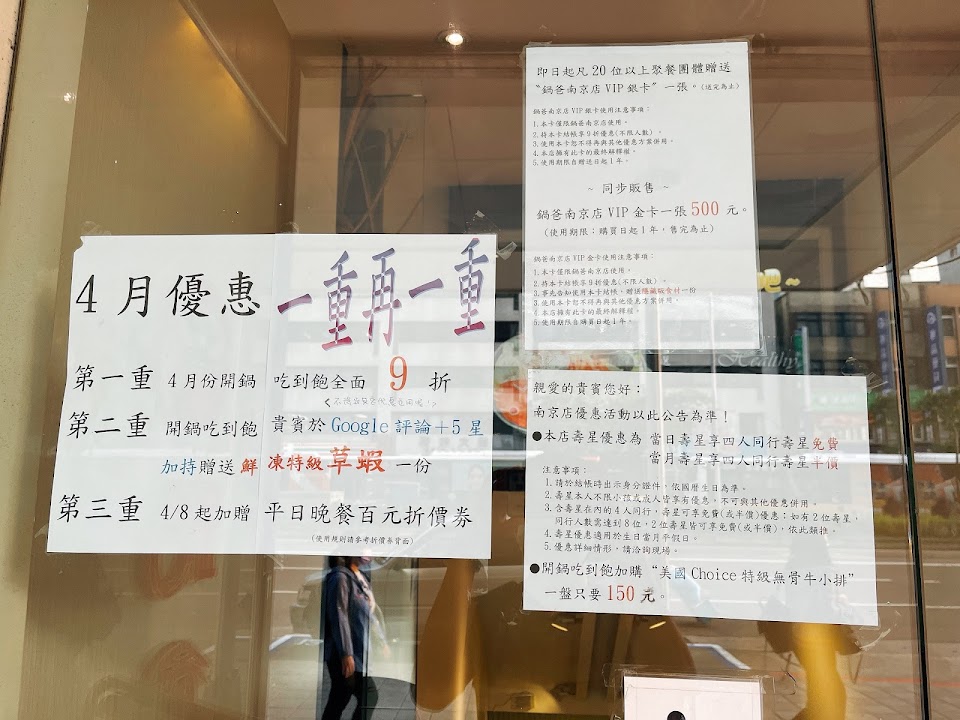 4月優惠 一重再一重
第一重 4月份開鍋 吃到飽全面 9 折
第二重 開鍋吃到飽 貴賓於 Google 評論+5 星
加持贈送 鮮凍特級草蝦 一份
第三重 4/8 起加贈 平日晚餐百元折價券
(使用規則請參考折價券背面)
即日起凡 20 位以上聚餐團體贈送
“鍋爸南京店 VIP 銀卡” 一張。(送完為止)
鍋爸南京店 VIP 銀卡使用注意事項:
1.本卡僅限鍋爸南京店使用。
2.持本卡結帳享9折優惠(不限人數)。
3.使用本卡恕不得再與其他優惠方案併用。
4.本店擁有此卡的最終解釋權。
5.使用期限自贈送日起1年。
~ 同步販售 ~
鍋爸南京店 VIP 金卡一張 500 元。
(使用期限:購買日起1年,售完為止)
鍋爸南京店 VIP 金卡使用注意事項:
1.本卡僅限鍋爸南京店使用。
2.持本卡結帳享9折優惠(不限人數)。
3.事先告知使用本卡結帳,贈送隱藏版食材一份
3.使用本卡恕不得再與其他優惠方案併用。
4.本店擁有此卡的最終解釋權。
5.使用期限自購買日起1年。
吧~
Healthy
親愛的貴賓您好:
南京店優惠活動以此公告為準!
●本店壽星優惠為 當日壽星享四人同行壽星免費
當月壽星享四人同行壽星半價
注意事項:
1.請於結帳時出示身分證件,依國曆生日為準。
2.壽星本人不限小孩或成人皆享有優惠,不可與其他優惠併用。
3.含壽星在內的4人同行,壽星可享免費(或半價)優惠;如有2位壽星,
同行人數需達到8位,2位壽星皆可享免費(或半價),依此類推。
4.壽星優惠適用於生日當月平假日。
5.優惠詳細情形,請洽詢現場。
●開鍋吃到飽加購 “美國 Choice 特級無骨牛小排”
一盤只要 150 元。